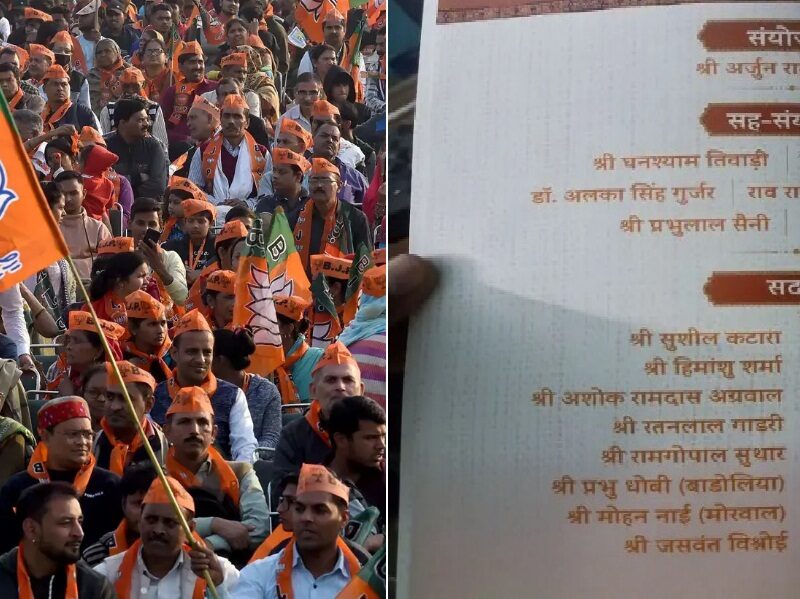 B.J.P.
B.J.P.
B.J.P.
संयोज
श्री अर्जुन रा
सह-संय
श्री घनश्याम तिवाड़ी
डॉ. अलका सिंह गुर्जर | राव रा
श्री प्रभुलाल सैनी
सद
श्री सुशील कटारा
श्री हिमांशु शर्मा
श्री अशोक रामदास अग्रवाल
श्री रतनलाल गाडरी
श्री रामगोपाल सुथार
श्री प्रभु धोबी (बाडोलिया)
श्री मोहन नाई (मोरवाल)
श्री जसवंत विश्नोई